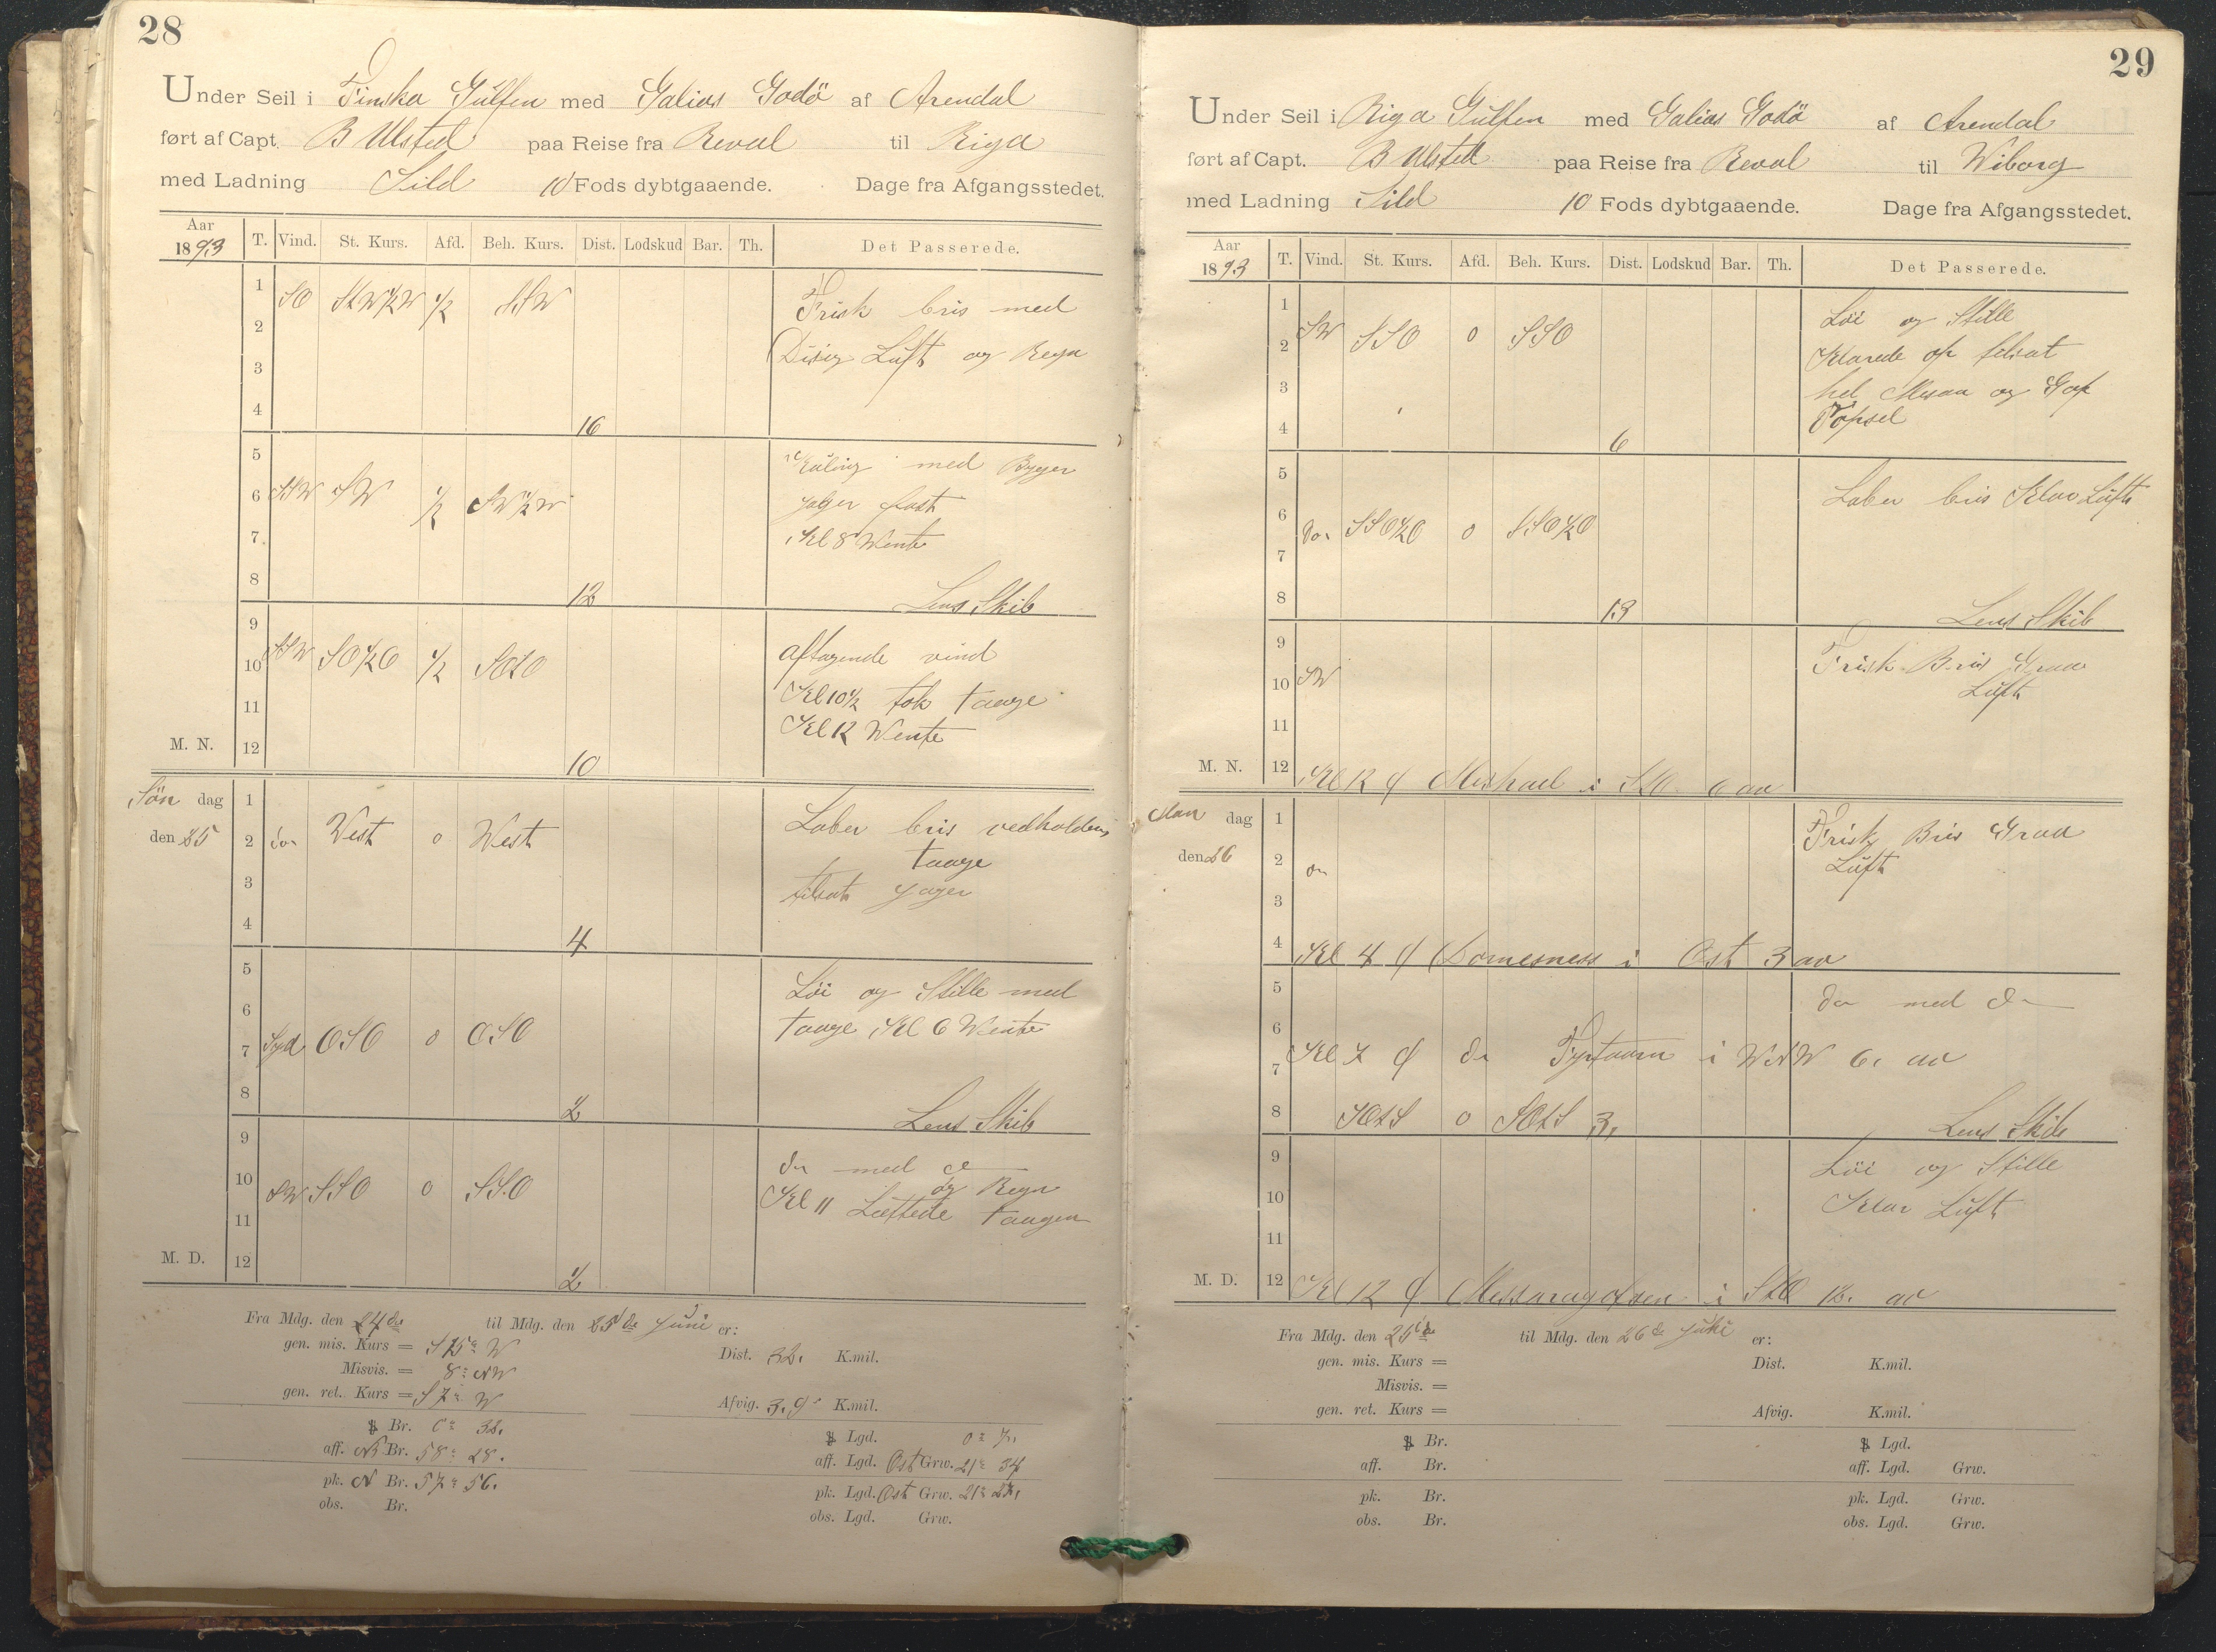 28
Under Seil i Finska Gulfen med Galias Godö af Arendal
ført af Capt. B Ulsted paa Reise fra Reval til Riga
med Ladning Sild 10 Fods dybtgaaende. Dage fra Afgangsstedet.
Aar 1893 T. Vind. St. Kurs. Afd. Beh. Kurs. Dist. Lodskud Bar. Th. Det Passerede.
1 SO StW½W ½ SSW Frisk bris med
2 Disig Luft og Regn
3
4 16
5 Kuling med Byger
6 SSW SW ½ SW½W Jager fast
7 Kl 8 Wente
8 12 Lens Skib
9
10 SSW SO½O ½ SOtO aftagende vind
11 Kl 10½ tok taage
M. N. 12 10 Kl 12 Wente
Søn dag 1 Laber bris vedholdene
den 25 2 do West o West taage
3 tilsat Jager
4 4
5 Löi og Stille med
6 taage Kl 6 Wente
7 Syd OSO o OSO
8 2 Lens Skib
9 do med do
10 SW SSO o SSO og Regn
11 Kl 11 Lættede taagen
M. D. 12 2
Fra Mdg. den 24de til Mdg. den 25de Juni er:
gen. mis. Kurs = S 15° W Dist. 32. K.mil.
Misvis. = 8° NW
gen. ret. Kurs = S 7° W Afvig. 3.9 K.mil.
Br. 0° 32. Lgd. 0° 7.
aff. N Br. 58° 28. aff. Lgd. Ost Grw. 21° 34
pk. N Br. 57° 56. pk. Lgd. Ost Grw. 21° 27.
obs. Br. obs. Lgd. Grw.
29
Under Seil i Riga Gulfen med Galias Godö af Arendal
ført af Capt. B Ulsted paa Reise fra Reval til Wiborg
med Ladning Sild 10 Fods dybtgaaende. Dage fra Afgangsstedet.
Aar 1893 T. Vind. St. Kurs. Afd. Beh. Kurs. Dist. Lodskud Bar. Th. Det Passerede.
1 Löi og Stille
2 SW SSO o SSO Klarede op tilsat
3 hel Mesan og Gap
4 6 Topsel
5 Laber bris Klar Luft
6 do. SSO½O o SSO½O
7
8 13 Lens Skib
9 Frisk Bris Graa
10 SW Luft
11
M. N. 12 Kl 12 Mishael i StO 6 av
Man dag 1 Frisk Bris Graa
den 26 2 do Luft
3
4 Kl 4 Domesness i Ost 3 av
5 do med do
6
7 Kl 7 do Fyrtaarn i WNW 6. av
8 SOtS o SOtS 3. Lens Skib
9 Löi og Stille
10 Klar Luft
11
M. D. 12 Kl 12 Messaragotsen i StO 12. av
Fra Mdg. den 25de til Mdg. den 26de Juni er:
gen. mis. Kurs = Dist. K.mil.
Misvis. =
gen. ret. Kurs = Afvig. K.mil.
Br. Lgd.
aff. Br. aff. Lgd. Grw.
pk. Br. pk. Lgd. Grw.
obs. Br. obs. Lgd. Grw.